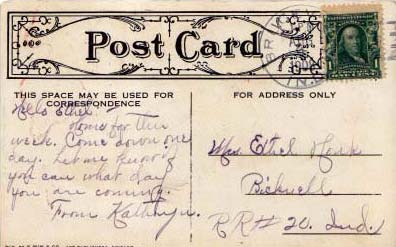 Post Card
THIS SPACE MAY BE USED FOR
CORRESPONDENCE
FOR ADDRESS ONLY
Hello Ethel
Home for the
week. Come down one
day. Let me know if
you can what day
you are coming.
From Kathryn.
Mrs. Ethel
Bicknell
RR# 20. Ind.
1